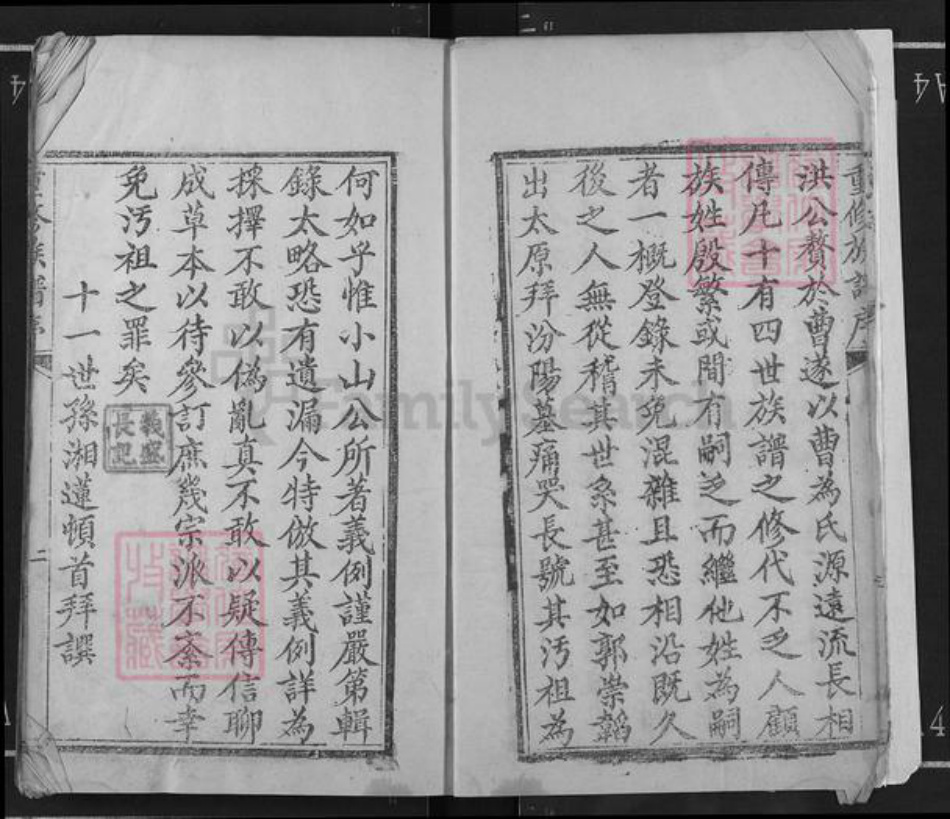 重修族譜序
洪公贅於曹遂以曹為氏源遠流長相
傳凡十有四世族譜之修代不乏人顧
族姓殷繁或間有嗣乏而繼他姓為嗣
者一概登錄未免混雜且恐相沿既久
後之人無從稽其世系甚至如郭崇韜
出太原拜汾陽墓痛哭長號其汚祖為
何如乎惟小山公所著義例謹嚴第輯
錄太略恐有遺漏今特倣其義例詳為
採擇不敢以偽亂真不敢以疑傳信聊
成草本以待參訂庶幾宗派不紊而幸
免汚祖之罪矣
十一世孫湘蓮頓首拜譔
義盛
長記
二
FamilySearch